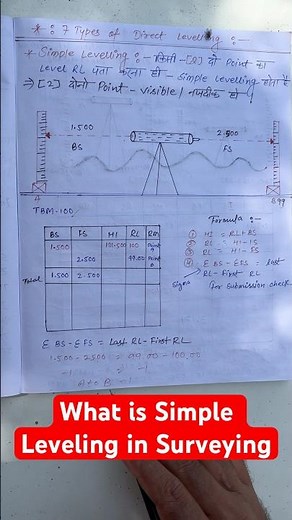 * : 7 Types of Direct Levelling :-
* Simple Levelling :- किसी - [2] दो Point का
Level RL पता करना हो - Simple Levelling होता है
⇒ [2] दोनो Point - visible / नजदीक हो
1.500
2.500
BS
FS
A
TBM-100
Formula :-
BS FS HI RL Rem
1.500 101.500 100 Point
2.500 99.00 Point
Total 1.500 2.500
① HI = RL+BS
② RL = HI-FS
③ RL = HI-FS
④ Σ BS - Σ FS = Last
RL - First RL
for submission check
Σ BS - Σ FS = Last RL - First RL
1.500 - 2.500 = 99.00 - 100.00
-1 = -1
What is Simple
Leveling in Surveying